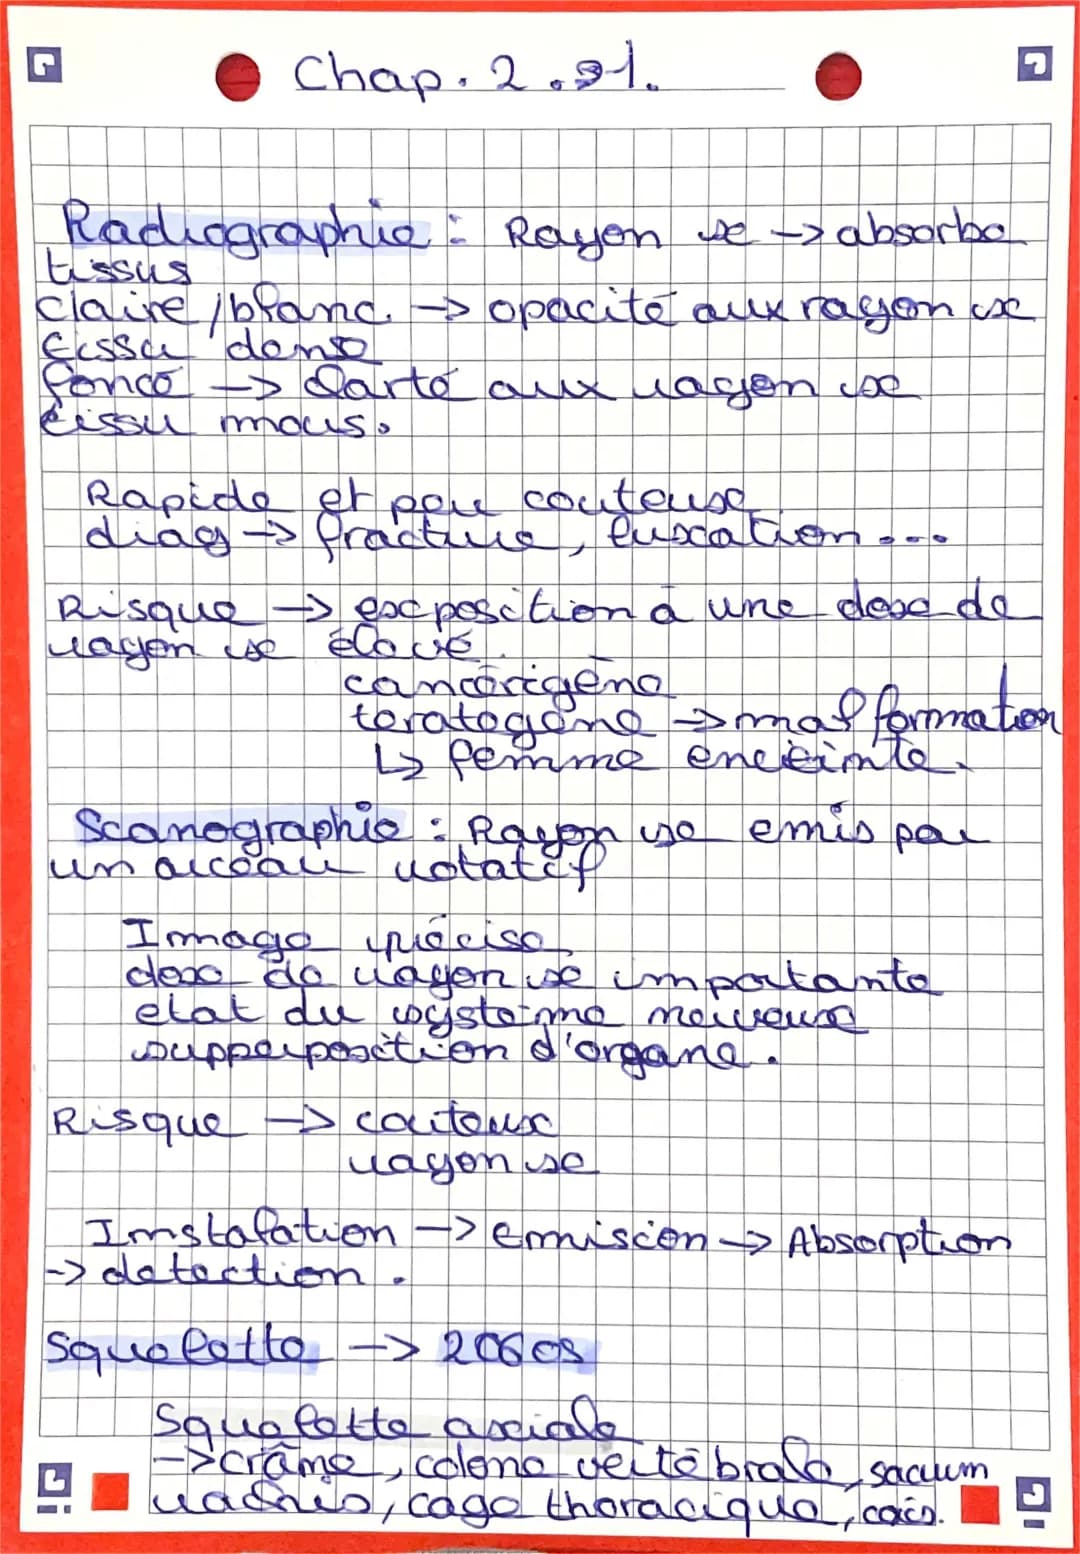 Chap. 2.
Radiographie : Rayon x -> absorbe
tissus
claire / blanc -> opacité aux rayon x
tissu dense
foncé -> clarté aux rayon x
tissu mous.
Rapide et peu couteuse
diag -> fracture, luxation...
Risque -> exposition à une dose de
rayon x élevé.
cancérigène
teratogène -> mal formation
↳ femme enceinte.
Scanographie : Rayon x emis par
un arceau rotatif
Image précise
dose de rayon x importante
etat du système nerveux
supperposition d'organe.
Risque -> couteux
rayon x
Instalation -> emission -> Absorption
-> detection.
Squelette -> 206 os
Squelette axiale
-> crâne, colone vertébrale, sacrum
cage thoracique,